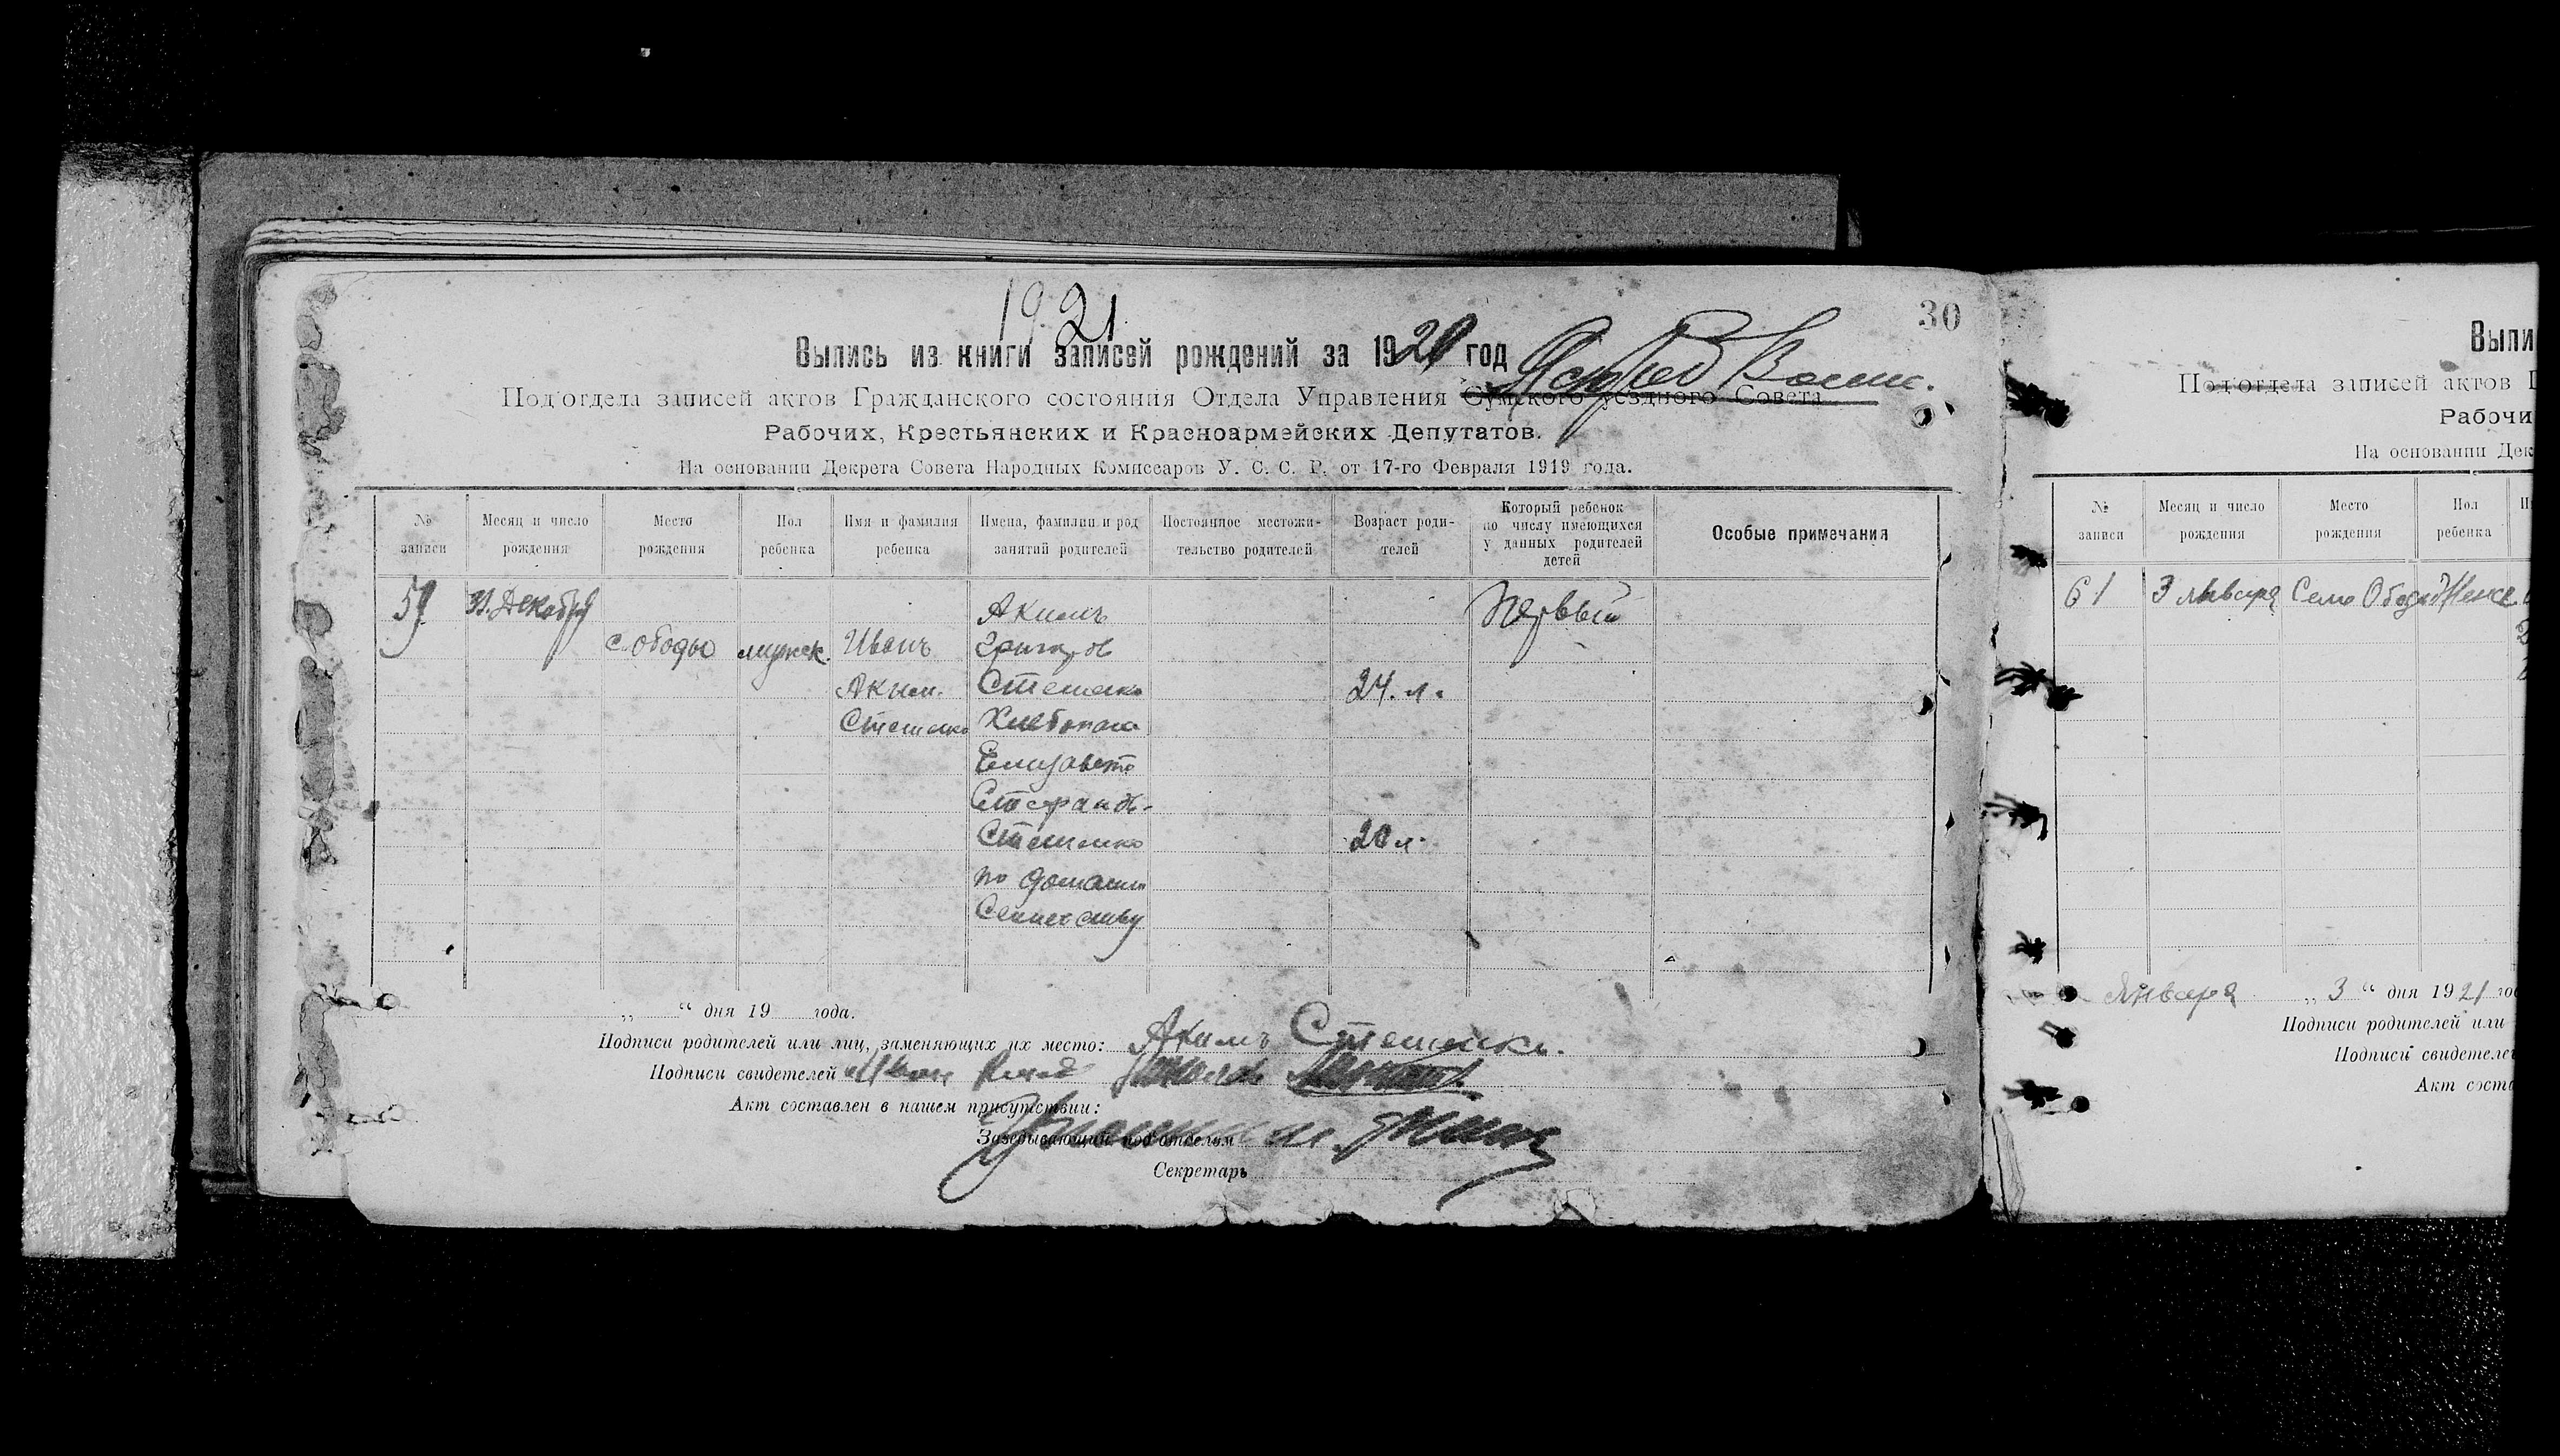 1921
30
Выпись из книги записей рождений за 1920 год
Подотдела записей актов Гражданского состояния Отдела Управления Сумского уездного Совета
Рабочих, Крестьянских и Красноармейских Депутатов.
На основании Декрета Совета Народных Комиссаров У. С. С. Р. от 17-го Февраля 1919 года.
№ записи
Месяц и число рождения
Место рождения
Пол ребенка
Имя и фамилия ребенка
Имена, фамилии и род занятий родителей
Постоянное местожительство родителей
Возраст родителей
Который ребенок по числу имеющихся у данных родителей детей
Особые примечания
59
31. Декабря
с. Ободы
мужск.
Иванъ
Аким.
Стешенко
Акимъ
Григоров
Стешенко
Хлебопаш
Елизавета
Стешенко
по домашн
24. л.
20 л.
Первый
„ “ дня 19 года.
Подписи родителей или лиц, заменяющих их место: Акимъ Стешенко.
Подписи свидетелей Иван
Акт составлен в нашем присутствии:
Заведывающий подотделом
Секретарь
Выпи
Подотдела записей актов Г
Рабочи
На основании Дек
№ записи
Месяц и число рождения
Место рождения
Пол ребенка
61
3 января
Село Ободы
Женск
Января „ 3 “ дня 1921 го
Подписи родителей или
Подписи свидетеле
Акт соста